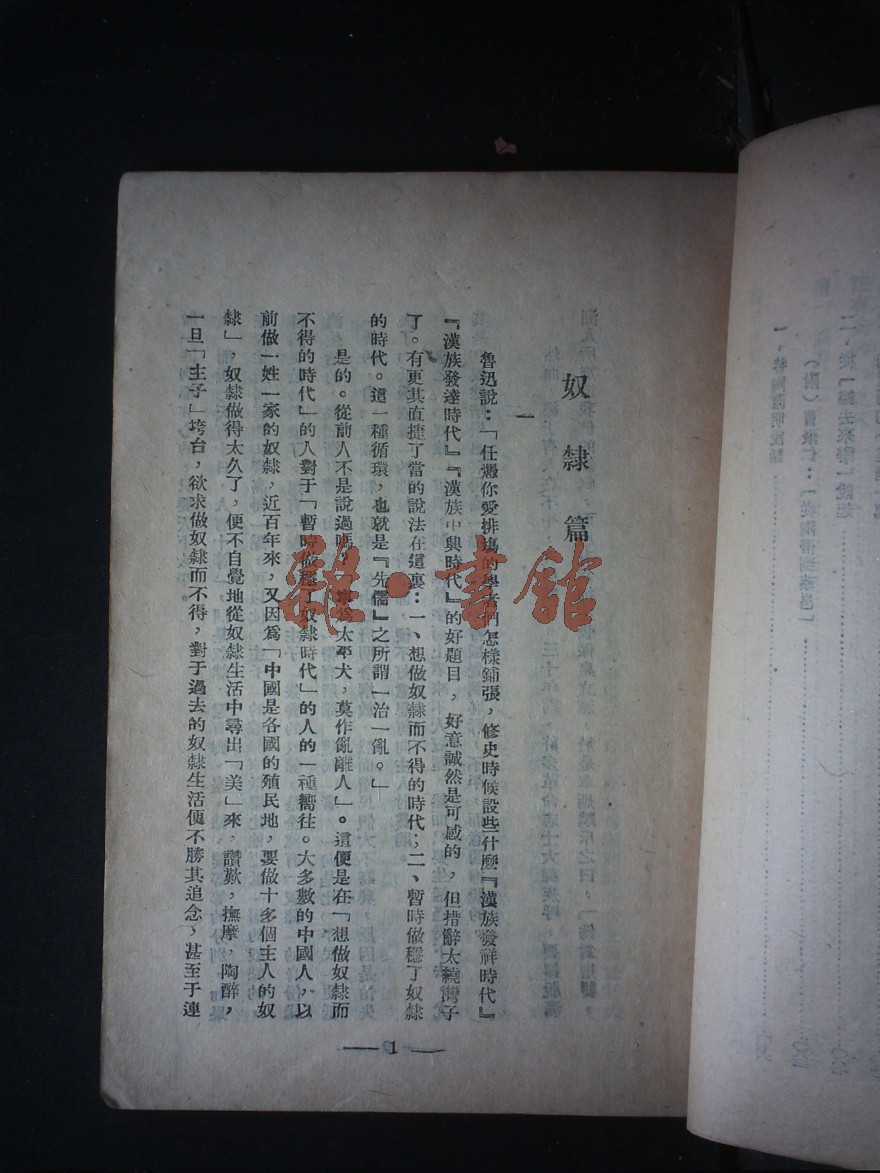 奴隸篇
一
魯迅說：「任憑你愛排場的學者們怎樣鋪張，修史時候設些什麼『漢族發祥時代』
『漢族發達時代』『漢族中興時代』的好題目，好意誠然是可感的，但措辭太繞灣子
了。有更其直捷了當的說法在這裏：一、想做奴隸而不得的時代；二、暫時做穩了奴隸
的時代。這一種循環，也就是『先儒』之所謂一治一亂。」
是的。從前人不是說過嗎，寧爲太平犬，莫作亂離人」。這便是在「想做奴隸而
不得的時代」的人對于「暫時做穩了奴隸時代」的人的一種嚮往。大多數的中國人，以
前做一姓一家的奴隸，近百年來，又因爲「中國是各國的殖民地，要做十多個主人的奴
隸」，奴隸做得太久了，便不自覺地從奴隸生活中尋出「美」來，讚歎，撫摩，陶醉，
一旦「主子」垮台，欲求做奴隸而不得，對于過去的奴隸生活便不勝其追念，甚至于連
— 1 —
雜·書館